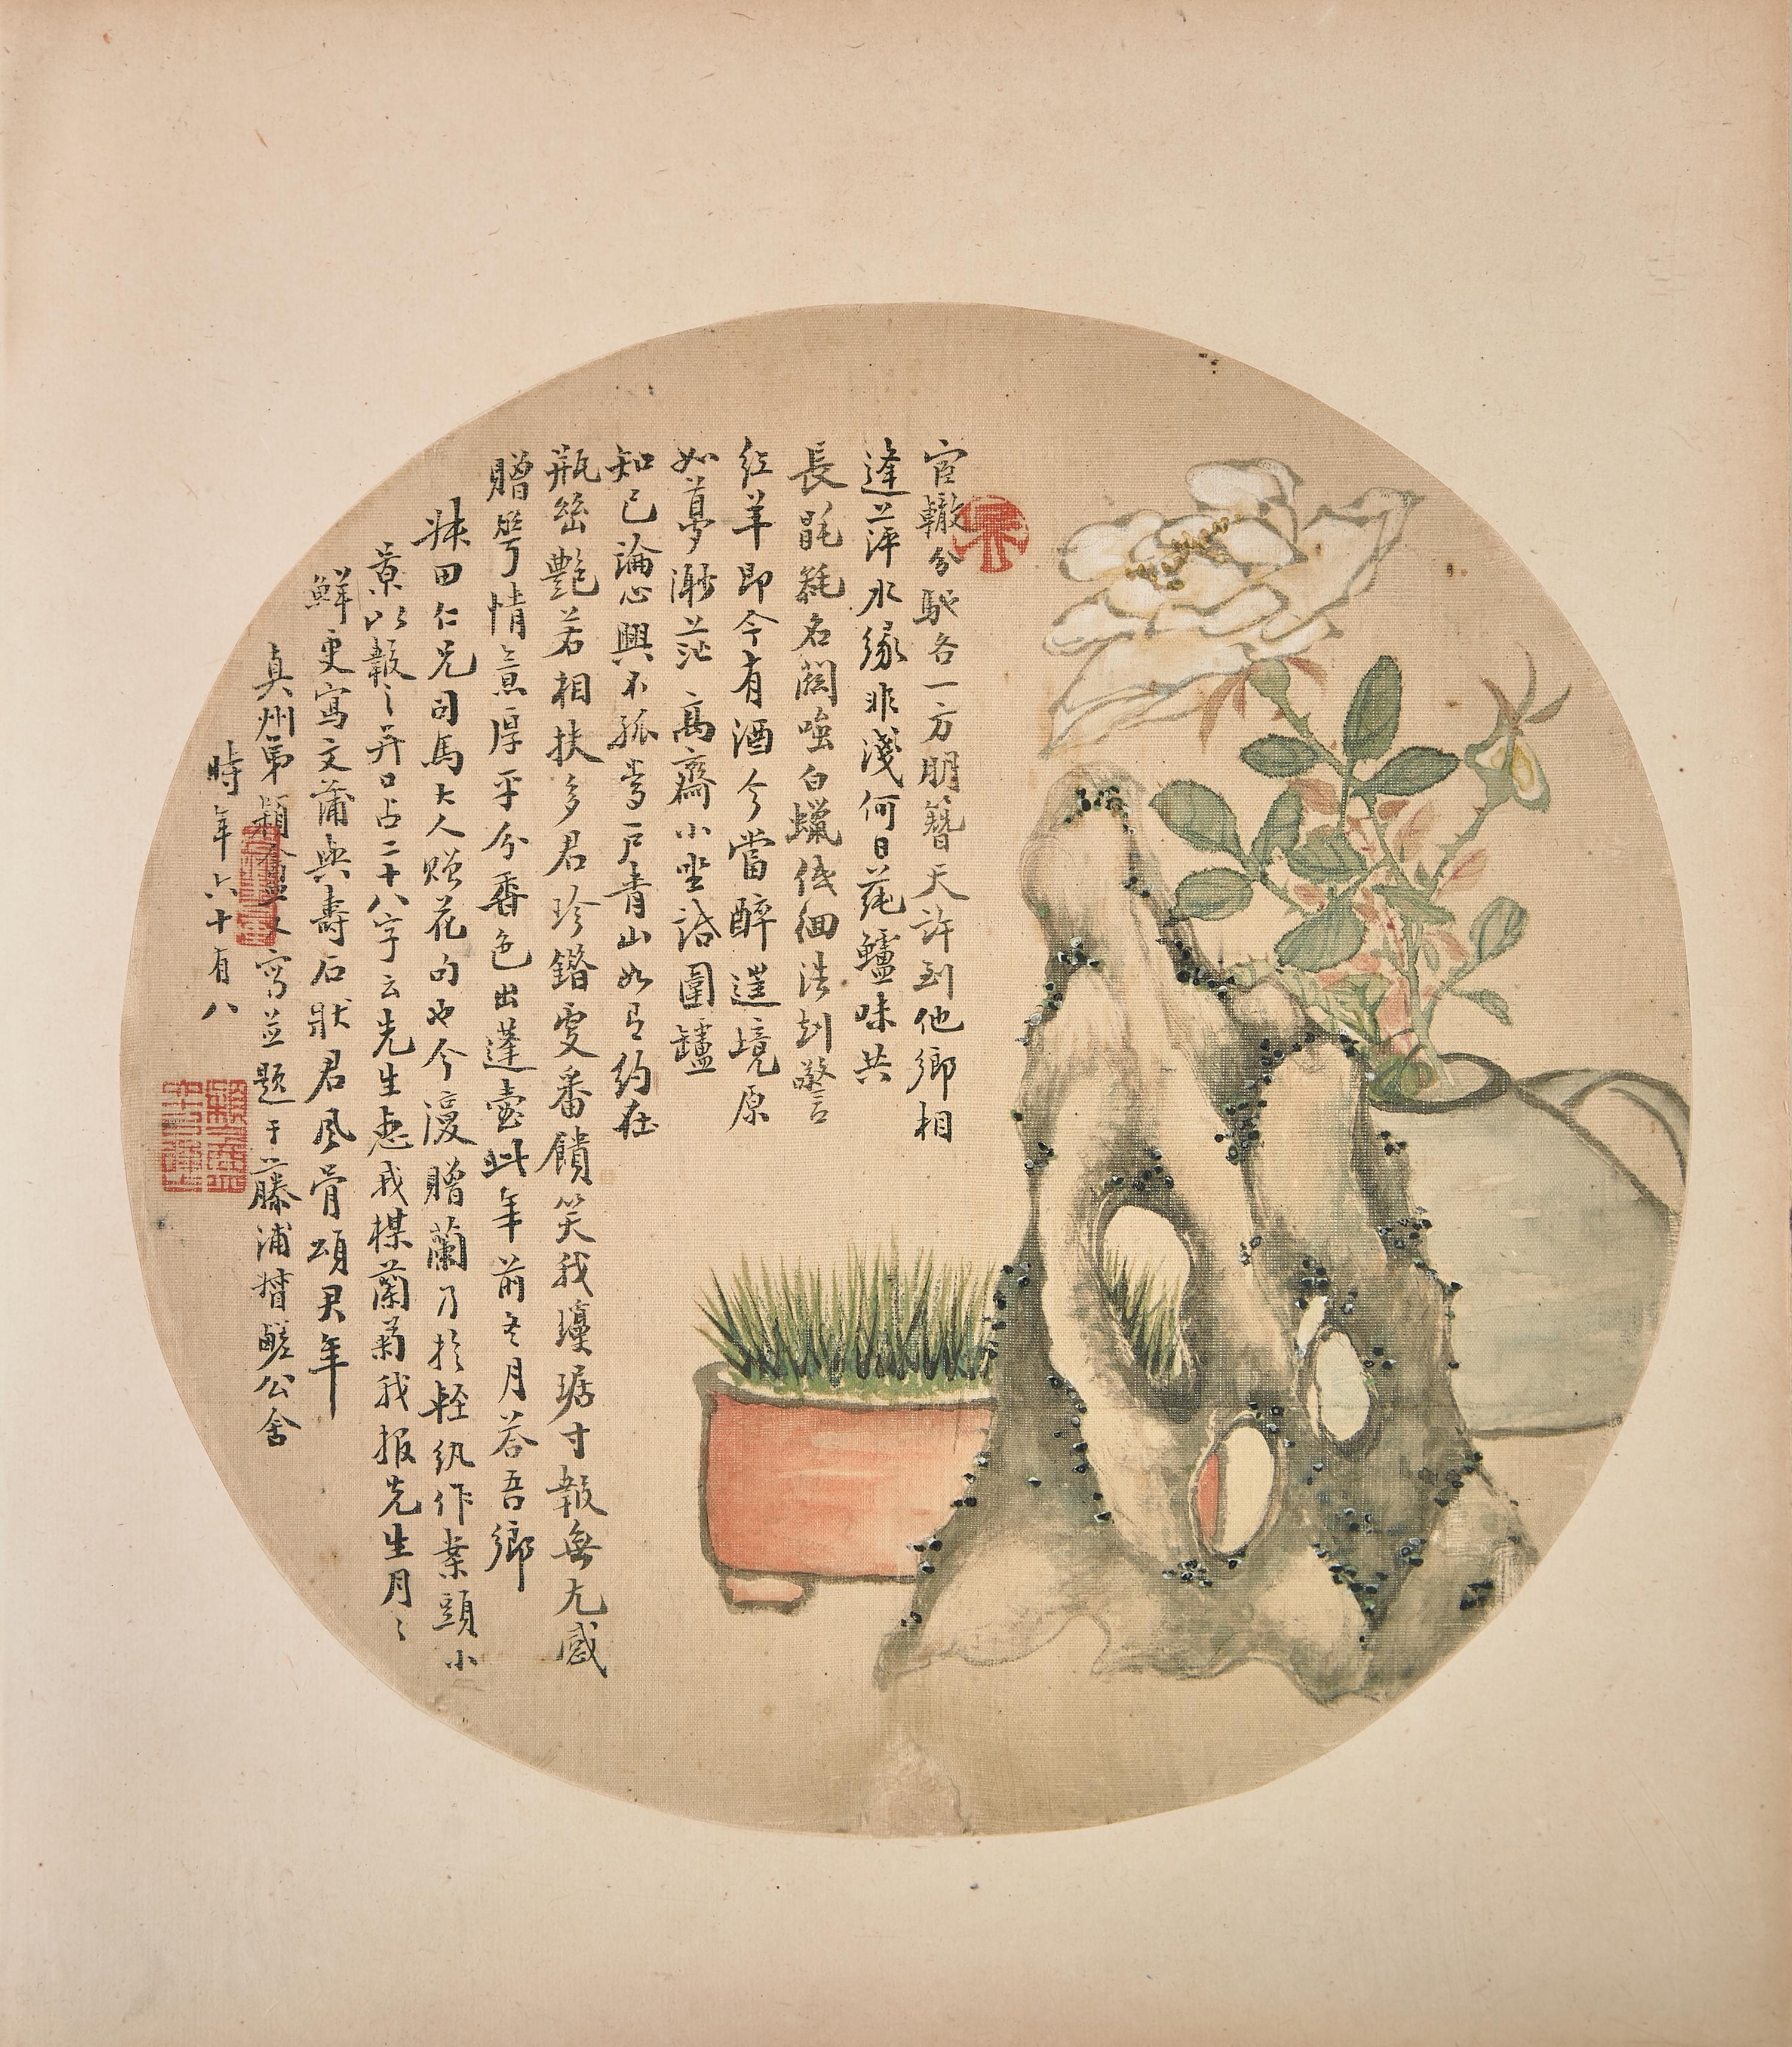 宦轍分馳各一方朋簪天許到他鄉相
逢萍水緣非淺何日蓴鱸味共
長毷氉名闗嗤白蠟低徊浩刦警
紅羊即今有酒今當醉蓬境原
如夢渺茫高齋小坐話圍鑪
知己論心興不孤當户青山如有約在
瓶詻艷若相扶多君珍錯雯番饋笑我瓊琚寸報無尤感
贈芎情意厚平分香色出蓬壺此年前冬月荅吾鄉
田仁兄司馬大人贈花句也今濅贈蘭乃於輕紈作案頭小
景以報之并口占二十八字云先生惠我楳蘭菊我报先生月〻
鮮更寫文蒲與壽石狀君風骨頌君年
真州弟穎又寫並題于藤浦榷鹺公舍
時年六十有八